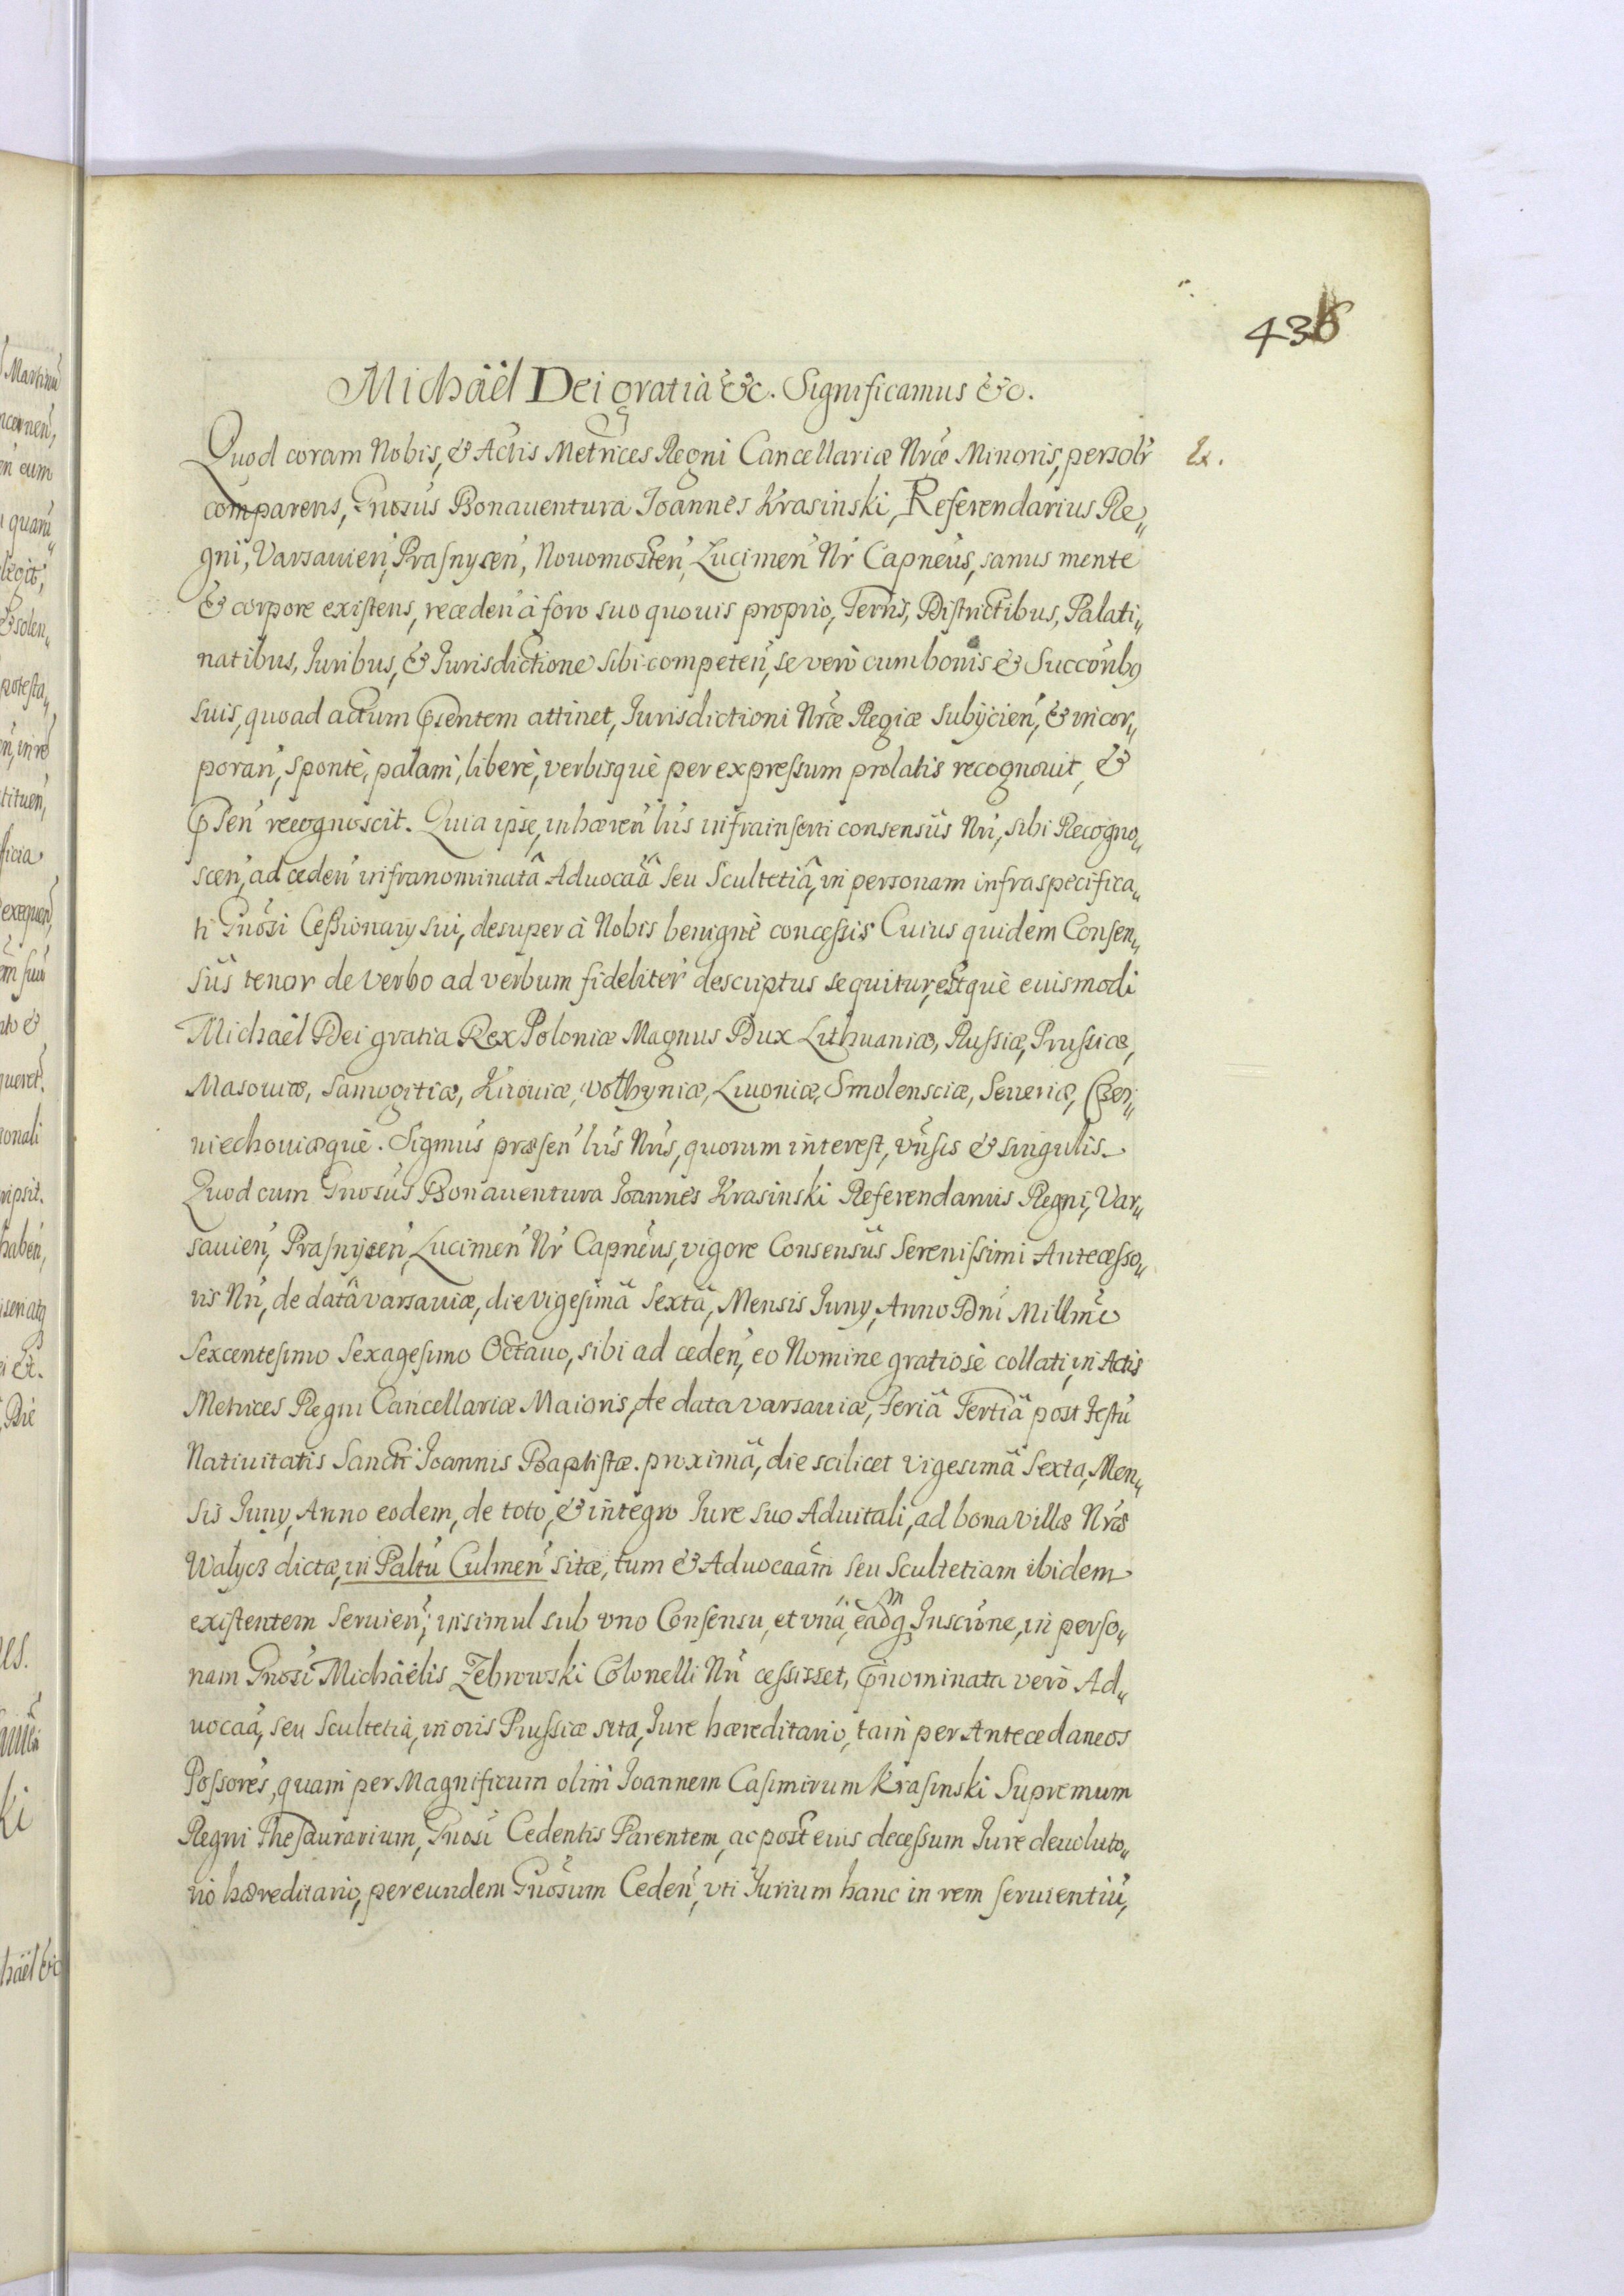 436
Michaël Dei gratia &c. Significamus &c.
Quod coram Nobis, & Actis Metrices Regni Cancellariæ Nræ Minoris, personlr Ex.
comparens, Gnosus Bonauentura Joannes Krasinski, Referendarius Re„
gni, Varsauien, Prasnysen, Nouomosten, Lucimen Nr Capneus, sanus mente
& corpore existens, receden à foro suo quouis proprio, Terris, Districtibus, Palati„
natibus, Juribus, & Jurisdictione sibi competen, se verò cum bonis & Succonbq
suis, quoad actum pñsentem attinet, Jurisdictioni Nræ Regiæ subijcien, & incor„
poran, spontè, palam, liberè, verbisquè per expressum prolatis recognouit, &
pñsen recognoscit. Quia ipse, inhæren lris infrainserti consensûs Nri, sibi Recogno„
scen, ad ceden infranominatâ Aduocaâ seu Scultetiâ, in personam infraspecifica„
ti Gnosi Cessionarij sui, desuper à Nobis benignè concessis Cuius quidem Consen„
sûs tenor de verbo ad verbum fideliter descriptus sequitur, estquè euismodi
Michaël Dei gratia Rex Poloniæ Magnus Dux Lithuaniæ, Russiæ, Prussiæ,
Masouiæ, Samogitiæ, Kiiouiæ, Volhyniæ, Liuoniæ, Smolensciæ, Seueriæ, Czer„
niechouiæquè. Sigmus præsen lris Nris, quorum interest, vnsis & singulis.
Quod cum Gnosus Bonauentura Joannes Krasinski Referendarius Regni, Var„
sauien, Prasnysen, Lucimen Nr Capneus, vigore Consensûs Serenissimi Antecesso„
ris Nri, de datâ varsauiæ, die vigesimâ Sextâ, Mensis Junij, Anno Dni Millmo
Sexcentesimo Sexagesimo Octauo, sibi ad ceden, eo Nomine gratiosè collati, in Actis
Metrices Regni Cancellariæ Maioris, de data varsauiæ, Feriâ Tertiâ post Festu
Natiuitatis Sancti Joannis Baptistæ. proximâ, die scilicet vigesimâ Sexta, Men„
sis Junij, Anno eodem, de toto, & integro Jure suo Aduitali, ad bona villæ Nræ
Walycz dictæ, in Paltu Culmen sitæ, tum & Aduocaâm seu Scultetiam ibidem
existentem seruien, insimul sub vno Consensu, et vnâ, eadmq Inscrione, in perso„
nam Gnosi Michäelis Zebrowski Colonelli Nri cessisset, pñnominata verò Ad„
uocaâ, seu Scultetia, in oris Prussiæ sita, Jure hæreditario, tam per Antecedaneos
Possores, quam per Magnificum olim Joannem Casimirum Krasinski Supremum
Regni Thesaurarium, Gnosi Cedentis Parentem, ac post eius decessum Jure deuoluto„
rio hæreditario, per eundem Gnosum Ceden, vti Jurium hanc in rem seruientiu,